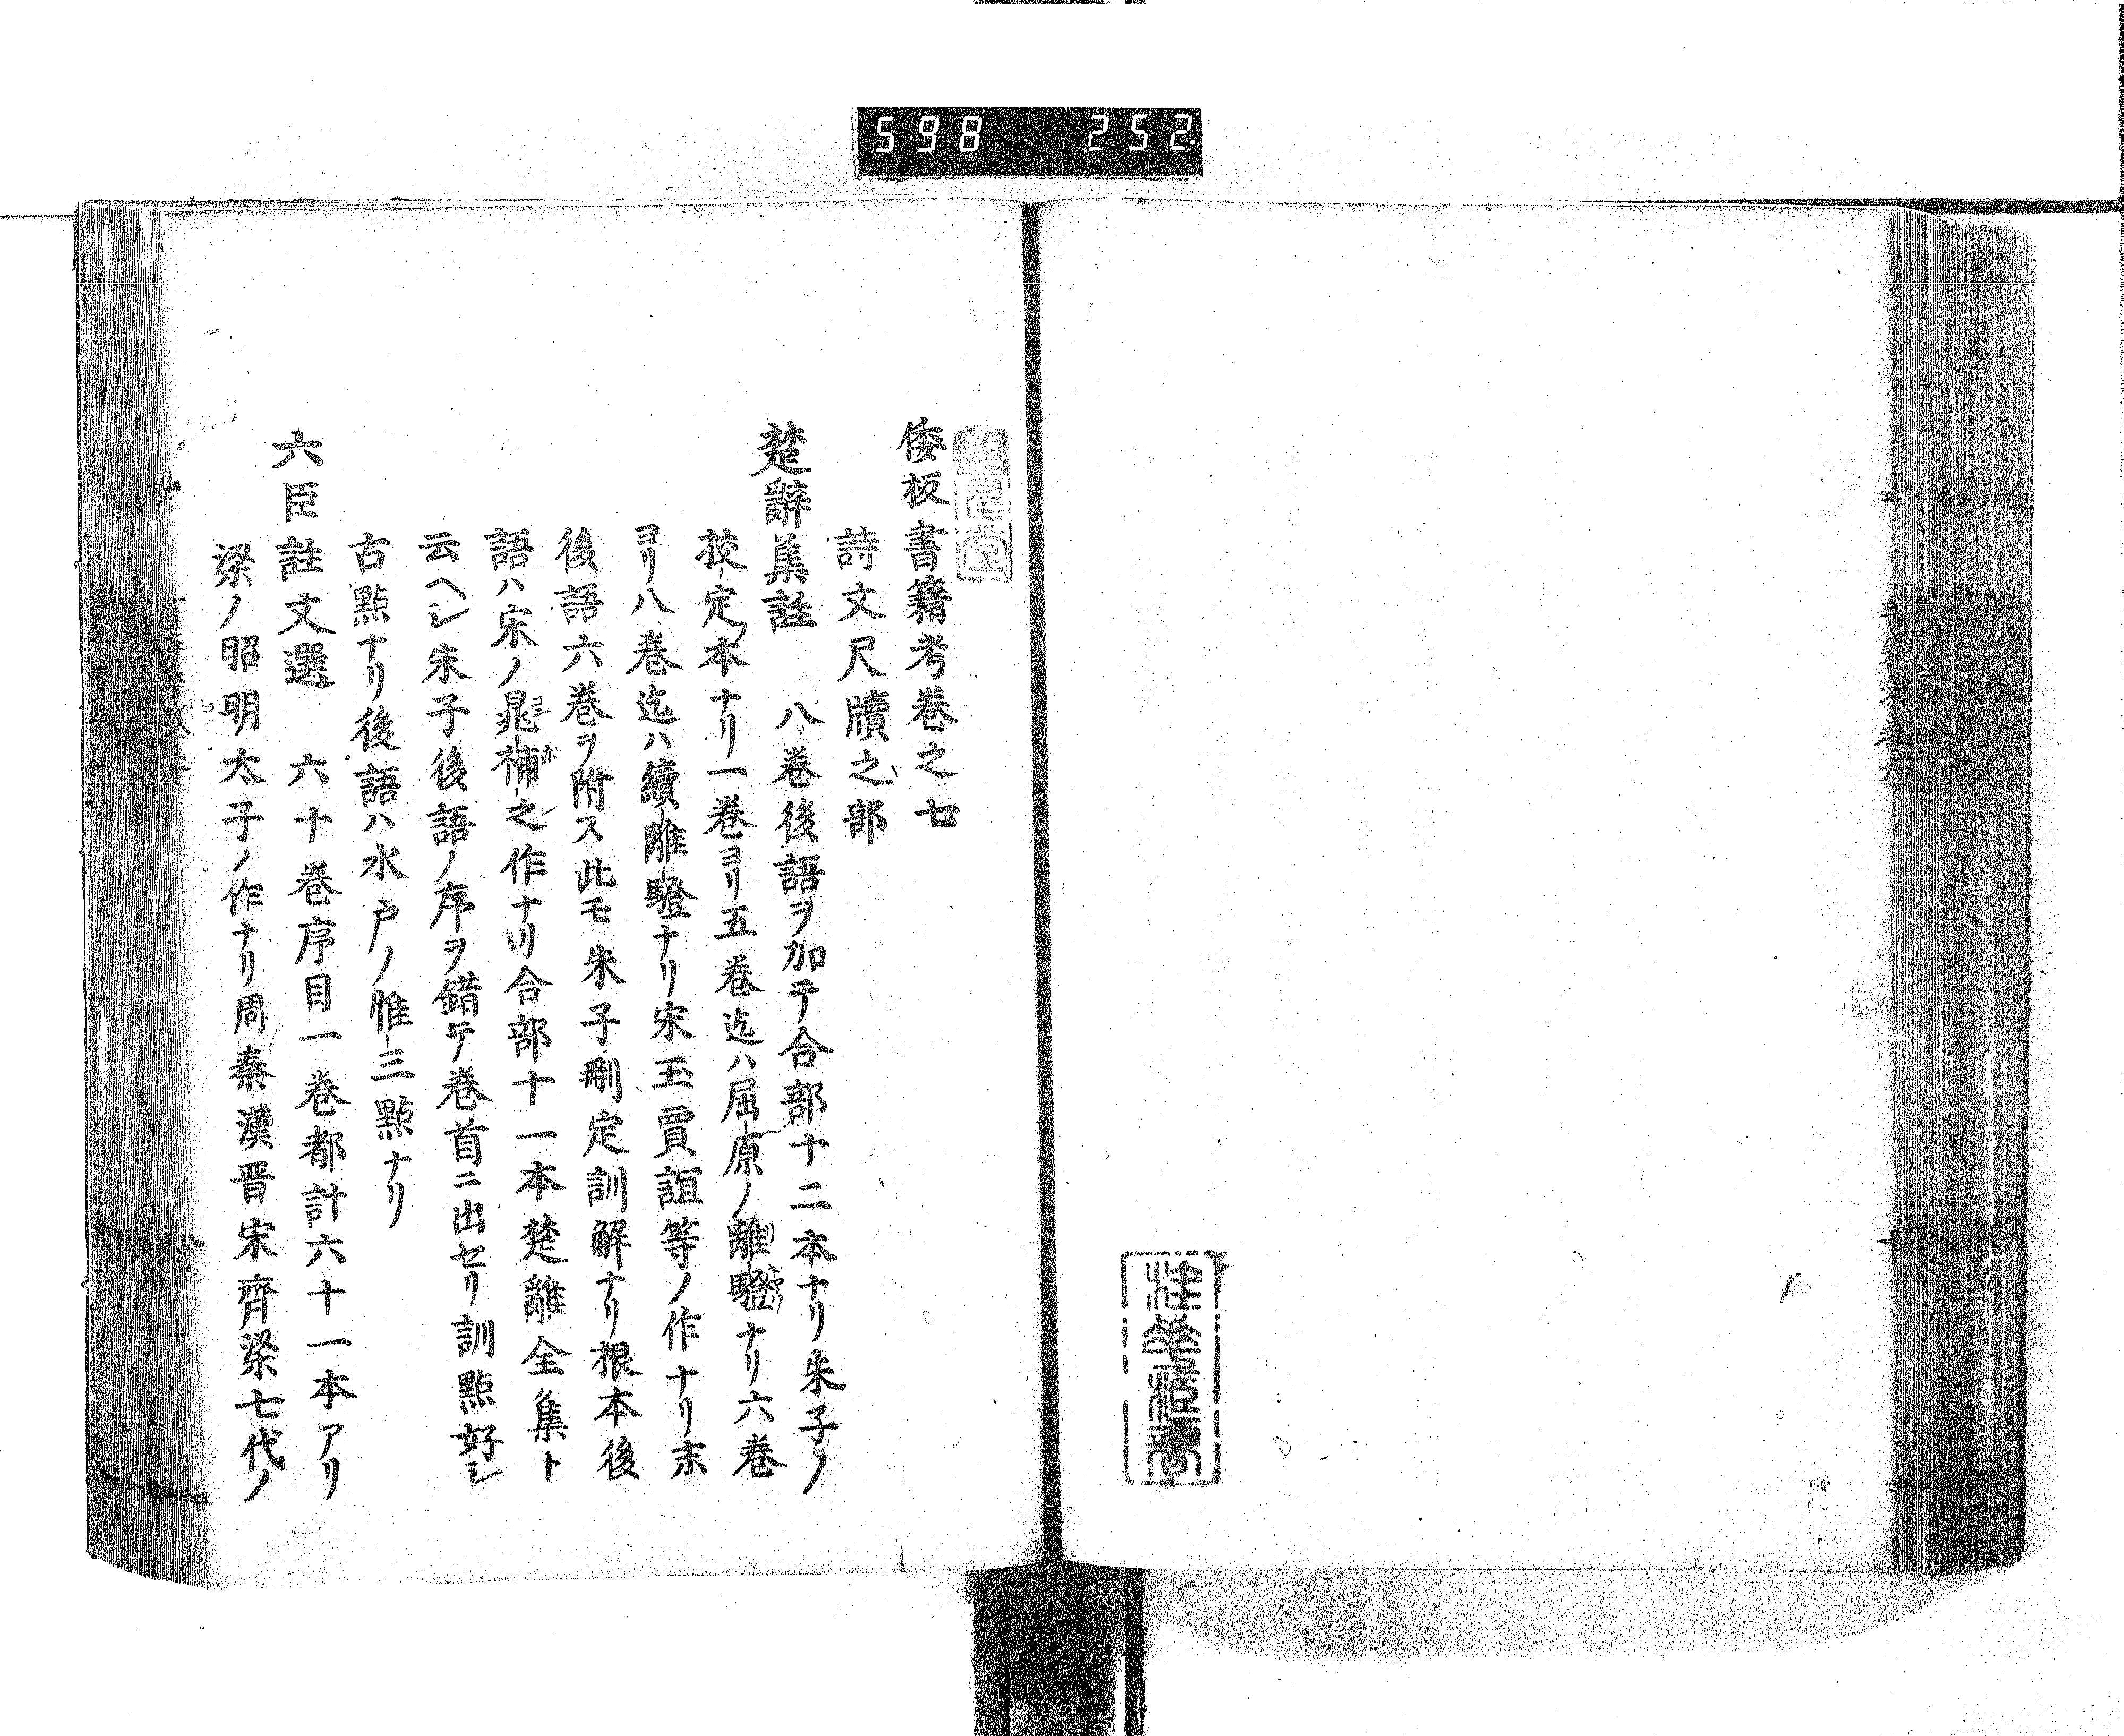 598 252
倭板書籍考巻之七
詩文尺牘之部
楚辭集註 八巻後語ヲ加テ合部十二本ナリ朱子ノ
挍定ノ本ナリ一巻ヨリ五巻迄ハ屈原ノ離騒ナリ六巻
ヨリ八巻迄ハ續離騒ナリ宋玉賈誼等ノ作ナリ末
後語六巻ヲ附ス此モ朱子刪定訓解ナリ根本後
語ハ宋ノ晁補之作ナリ合部十一本楚辭全集ト
云ヘシ朱子後語ノ序ヲ錯テ巻首ニ出セリ訓點好シ
古點ナリ後語ハ水戸ノ惟三點ナリ
六臣註文選 六十巻序目一巻都計六十一本アリ
梁ノ昭明太子ノ作ナリ周秦漢晋宋齊梁七代ノ